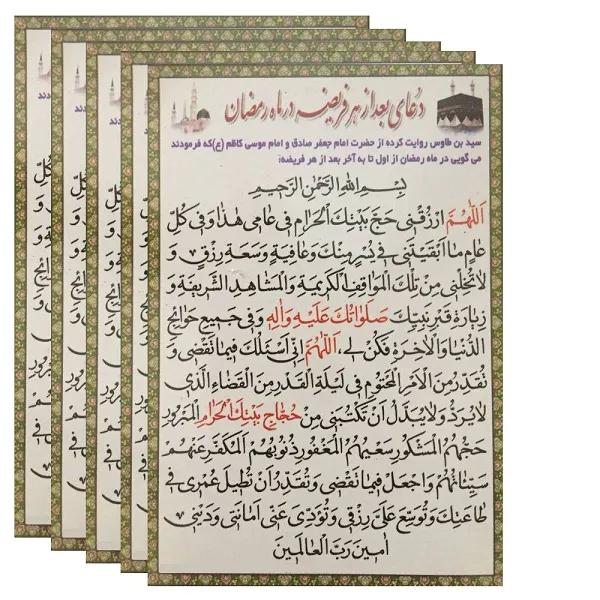 دعای بعد از هر فریضه در ماه رمضان
سید بن طاوس روایت کرده از حضرت امام جعفر صادق و امام موسی کاظم (ع)که فرمودند
می گویی در ماه رمضان از اول تا به آخر بعد از هر فریضه:
بِسْمِ اللهِ الرَّحْمٰنِ الرَّحِیمِ
اَللّٰهُمَّ ارْزُقْنی حَجَّ بَیْتِكَ الْحَرامِ فی عامی هٰذا وَ فی كُلِّ
عامٍ ما اَبْقَیْتَنی فی یُسْرٍ مِنْكَ وَ عافِیَةٍ وَسَعَةِ رِزْقٍ وَ
لا تُخْلِنی مِنْ تِلْكَ الْمَواقِفِ الْكَریمَةِ وَالْمَشاهِدِ الشَّریفَةِ وَ
زِیارَةِ قَبْرِ نَبِیِّكَ صَلَواتُكَ عَلَیْهِ وَالِهِ وَ فی جَمیعِ حَوائِجِ
الدُّنْیا وَالْاٰخِرَةِ فَكُنْ لی، اَللّٰهُمَّ اِنّی اَسْئَلُكَ فیما تَقْضی وَ
تُقَدِّرُ مِنَ الْاَمْرِ الْمَحْتُومِ فی لَیْلَةِ الْقَدْرِ مِنَ الْقَضاءِ الَّذی
لا یُرَدُّ وَلا یُبَدَّلُ اَنْ تَكْتُبَنی مِنْ حُجّاجِ بَیْتِكَ الْحَرامِ الْمَبْرُورِ
حَجُّهُمُ الْمَشْكُورِ سَعْیُهُمُ الْمَغْفُورِ ذُنُوبُهُمُ الْمُكَفَّرِ عَنْهُمْ
سَیِّئاتُهُمْ وَاجْعَلْ فیما تَقْضی وَتُقَدِّرُ اَنْ تُطیلَ عُمْری فی
طاعَتِكَ وَتُوَسِّعَ عَلَیَّ رِزْقی وَتُؤَدِّیَ عَنّی اَمانَتی وَ دَیْنی
امینَ رَبَّ الْعالَمینَ